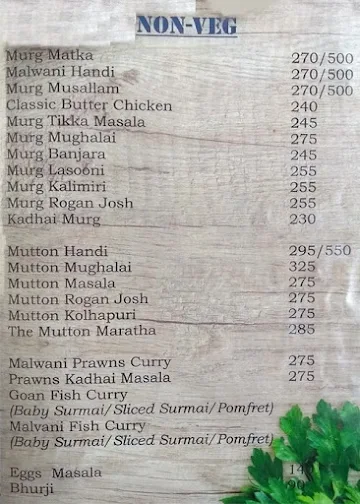 NON-VEG
Murg Matka 270/500
Malwani Handi 270/500
Murg Musallam 270/500
Classic Butter Chicken 240
Murg Tikka Masala 245
Murg Mughalai 275
Murg Banjara 245
Murg Lasooni 255
Murg Kalimiri 255
Murg Rogan Josh 255
Kadhai Murg 230
Mutton Handi 295/550
Mutton Mughalai 325
Mutton Masala 275
Mutton Rogan Josh 275
Mutton Kolhapuri 275
The Mutton Maratha 285
Malwani Prawns Curry 275
Prawns Kadhai Masala 275
Goan Fish Curry
(Baby Surmai/Sliced Surmai/Pomfret)
Malvani Fish Curry
(Baby Surmai/Sliced Surmai/Pomfret)
Eggs Masala 140
Bhurji 90